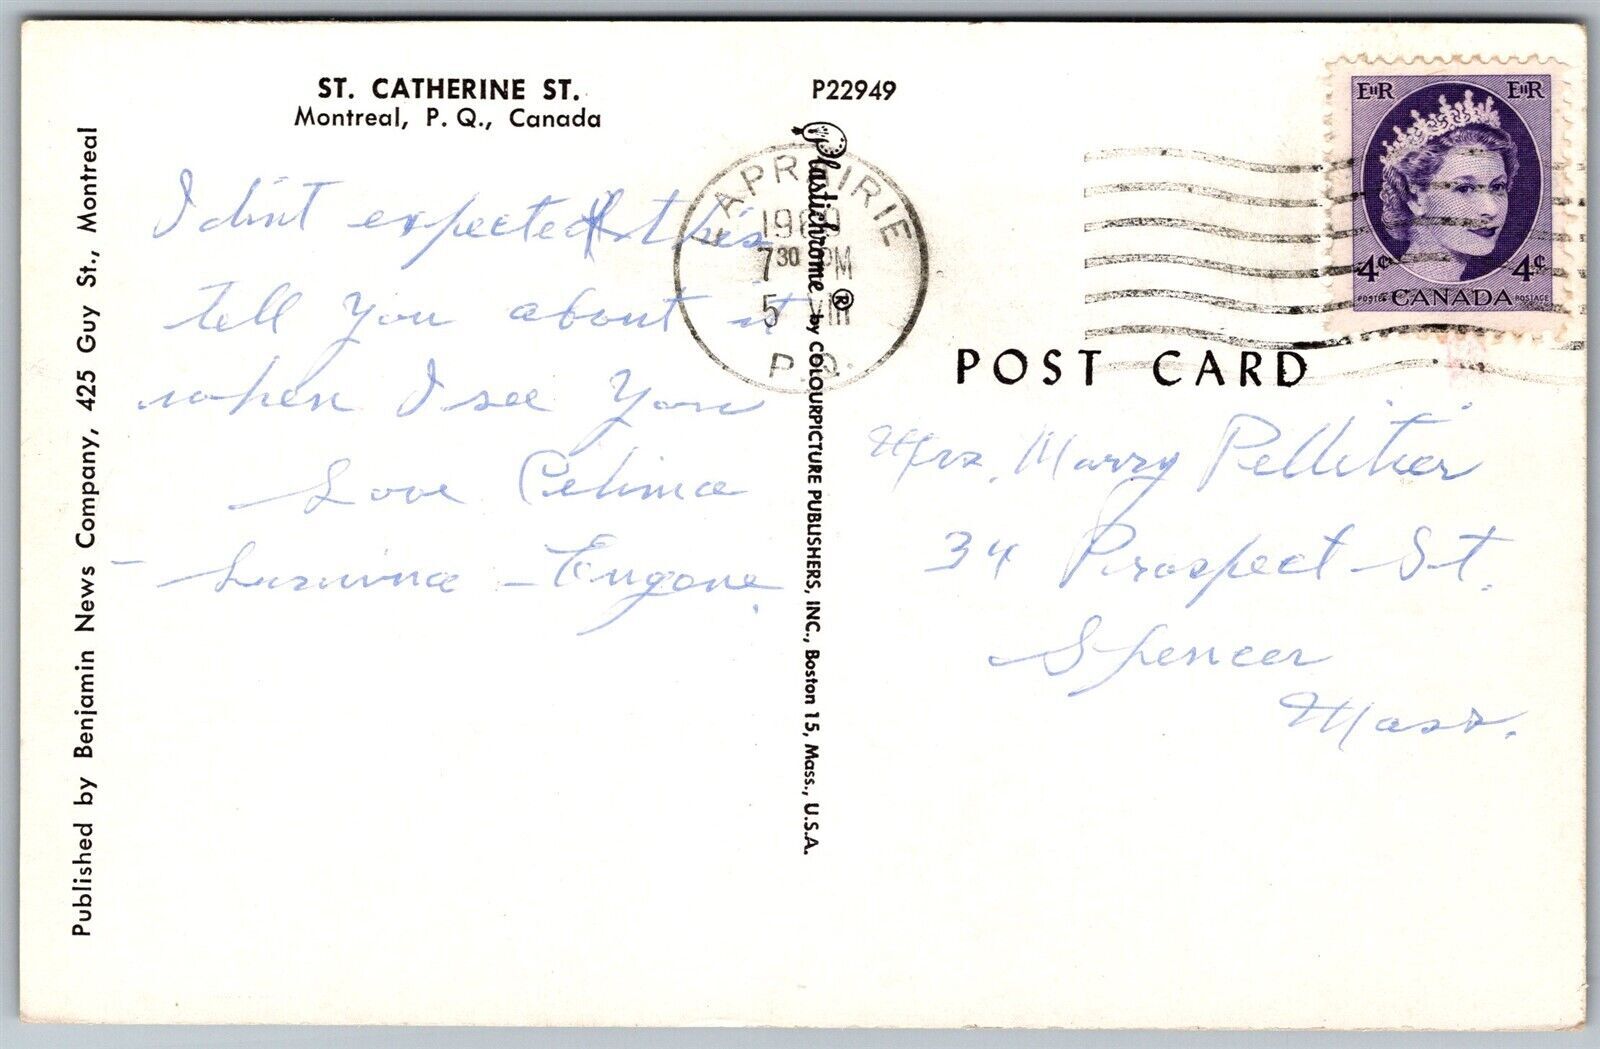 ST. CATHERINE ST.
Montreal, P. Q., Canada
P22949
Published by Benjamin News Company, 425 Guy St., Montreal
I dint expected this
tell you about it
when I see you
Love Celima
Eugene.
LAPRAIRIE
7 30 PM
5 VIII
P.Q.
Plastichrome® by COLOURPICTURE PUBLISHERS, INC., Boston 15, Mass., U.S.A.
EIIR EIIR
4¢ 4¢
POSTES CANADA POSTAGE
POST CARD
Mrs. Marry Pelletier
34 Prospect St.
Spencer
Mass.